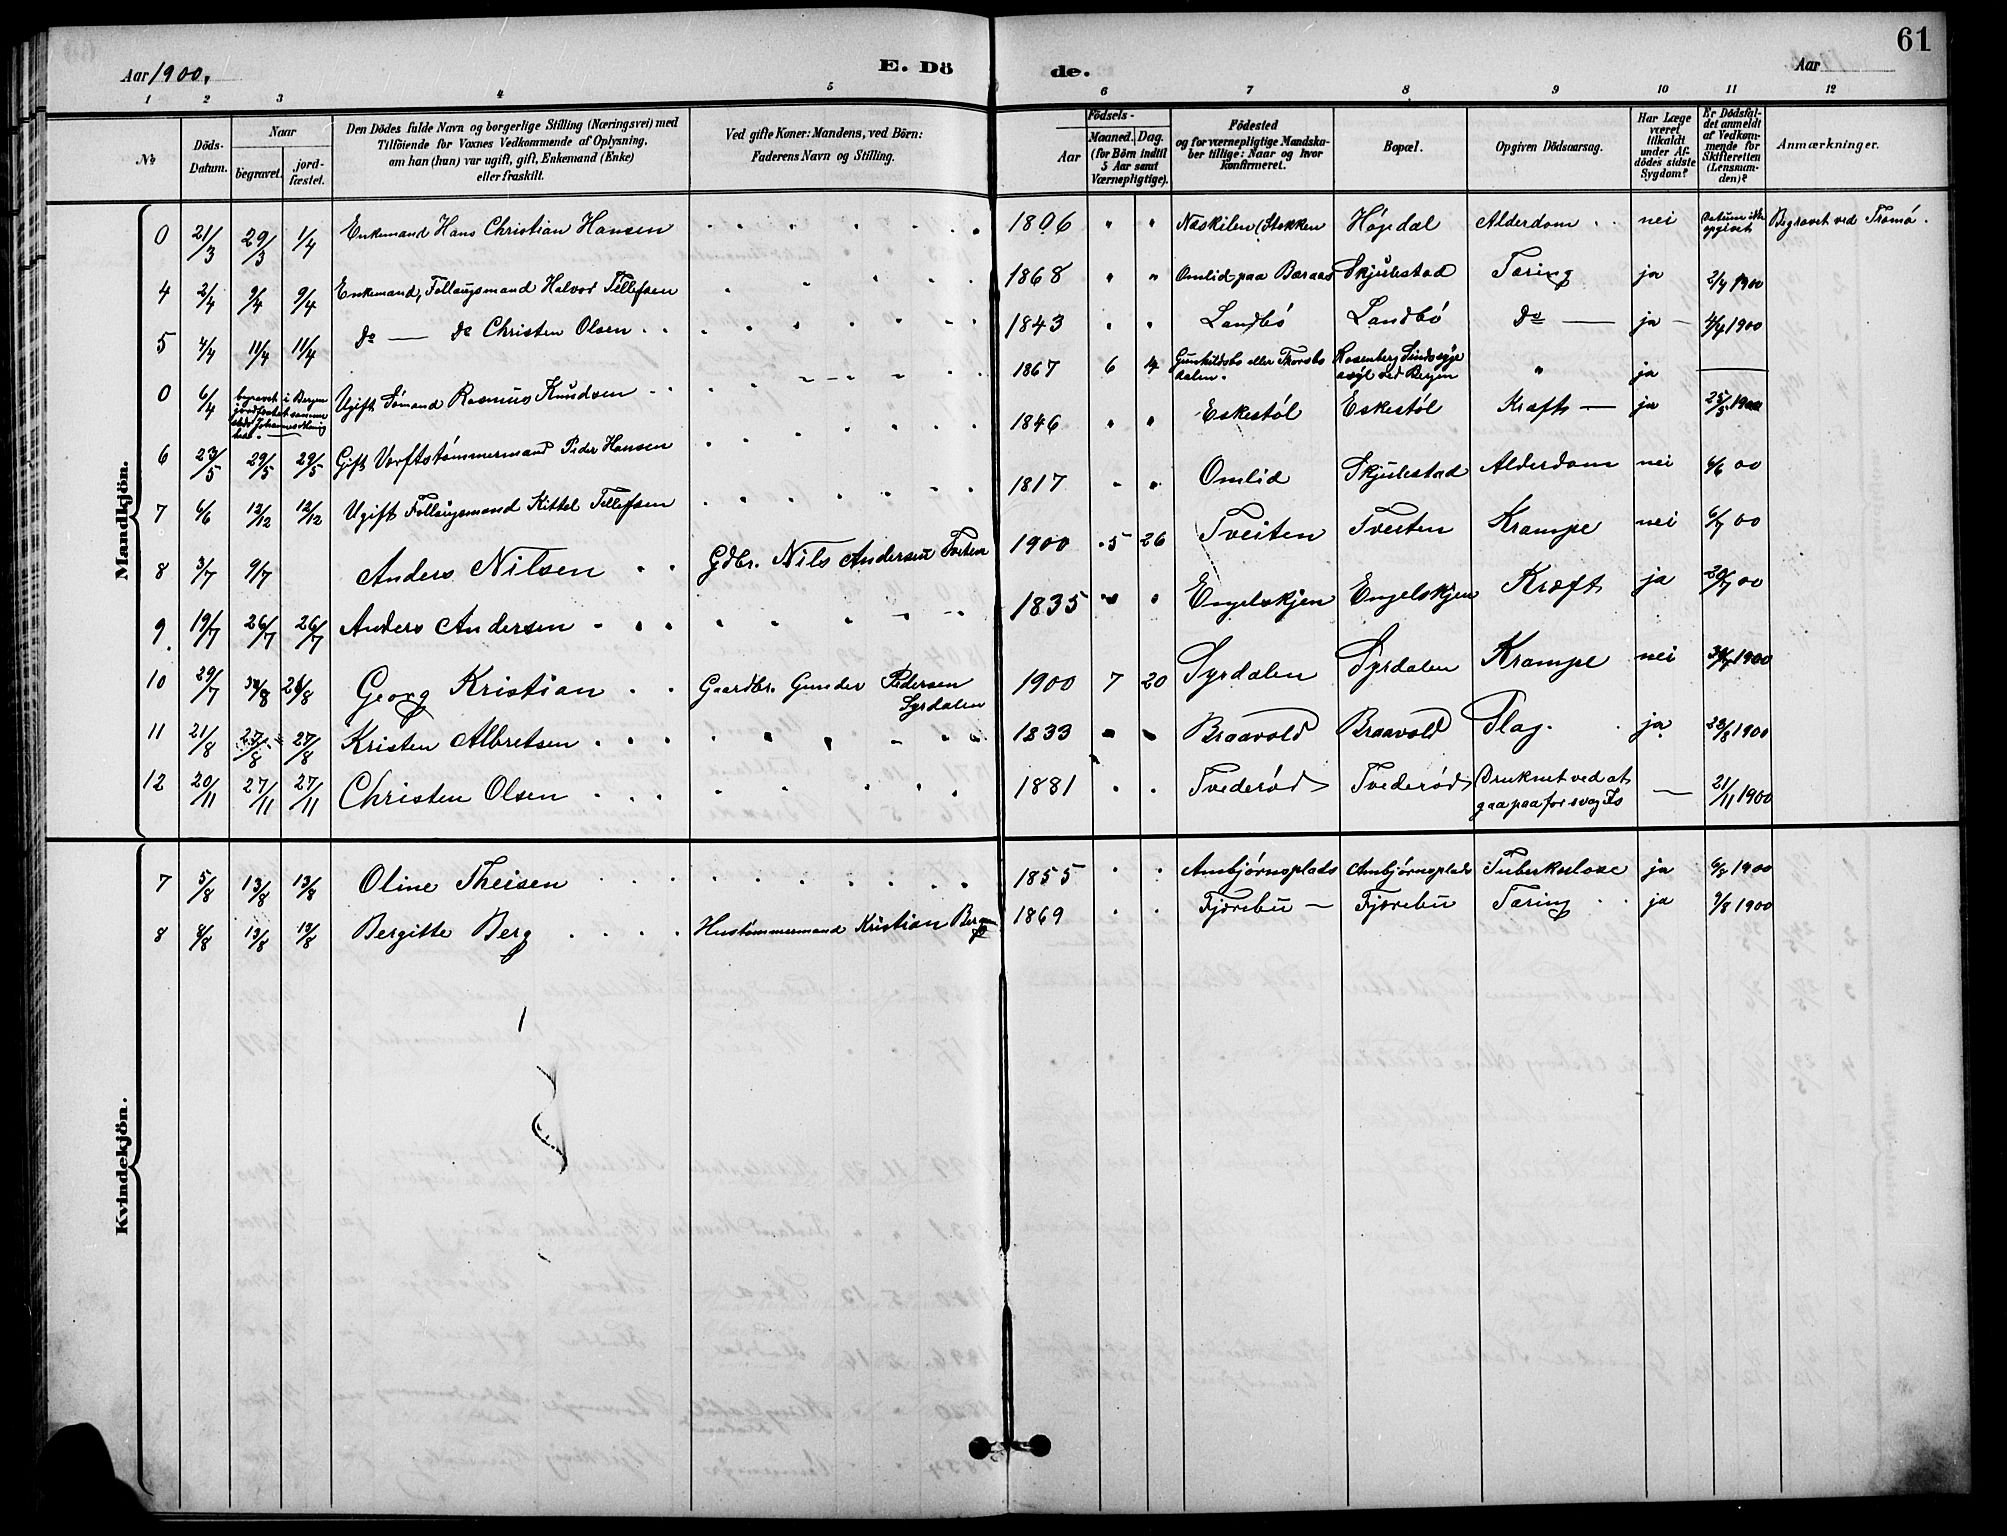 61
Aar 1900. E. Dö de. Aar
1 2 3 4 5 6 7 8 9 10 11 12
No Döds-Datum. Naar begravet. jordfæstet. Den Dödes fulde Navn og borgerlige Stilling (Næringsvei) med Tilföiende for Voxnes Vedkommende af Oplysning, om han (hun) var ugift, gift, Enkemand (Enke) eller fraskilt. Ved gifte Koner: Mandens, ved Börn: Faderens Navn og Stilling. Födsels- Aar Maaned. Dag. (for Börn indtil 5 Aar samt Værnepligtige). Födested og for værnepligtige Mandskaber tillige: Naar og hvor konfirmeret. Bopæl. Opgiven Dödsaarsag. Har Læge været tilkaldt under Afdödes sidste Sygdom? Er Dödsfaldet anmeldt af Vedkommende for Skifteretten (Lensmanden)? Anmærkninger.
Mandkjön.
0 21/3 29/3 1/4 Enkemand Hans Christian Hansen 1806 " " Næskilen (Stokken Højedal Alderdom nei Datum ikke opgivet Begravet ved Tromö.
4 2/4 9/4 9/4 Enkemand, Follaugsmand Halvor Tellefsen 1868 " " Omlid paa Baraas Skjulestad Tæring ja 2/4 1900
5 4/4 11/4 11/4 do — do Christen Olsen 1843 " " Landbö Landbö do — ja — 4/4 1900
0 6/4 begravet i Bergen Ugift Sömand Rasmus Knudsen 1867 6 4 Gunhildsbo eller Rosenberg Sindssyge asyl ved Bergen " ja —
6 23/5 29/5 29/5 Gift Værftstömmermand Peder Hansen 1846 " " Eskestöl Eskestöl Kræft — ja 25/5 1900
7 6/6 12/12 12/12 Ugift Follaugsmand Kittel Tellefsen 1817 " " Omlid Skjulestad Alderdom nei 6/6 00
8 3/7 9/7 Anders Nilsen Gdbr. Nils Andersen Tveten 1900 5 26 Tveiten Tveiten Krampe nei 6/7 00
9 19/7 26/7 26/7 Anders Andersen 1835 " " Engelskjen Engelskjen Kræft ja 20/7 00
10 29/7 26/8 Georg Kristian Gaardbr. Gunder Pedersen Syrdalen 1900 7 20 Syrdalen Syrdalen Krampe nei 1900
11 21/8 27/8 27/8 Kristen Albretsen 1833 " " Braavold Braavold Slag. ja 23/8 1900
12 20/11 27/11 27/11 Christen Olsen 1881 " " Tvederöd Tvederöd Druknet ved at gaa paa for svag Is — 21/11 1900
Kvindekjön.
7 5/8 13/8 13/8 Oline Theisen 1855 " " Ambjörnsplads Ambjörnsplads Tuberkulose ja 6/8 1900
8 8/8 13/8 13/8 Bergitte Berg Hustömmermand Kristian Berg 1869 " " Fjærebu — Fjærebu Tæring ja 9/8 1900